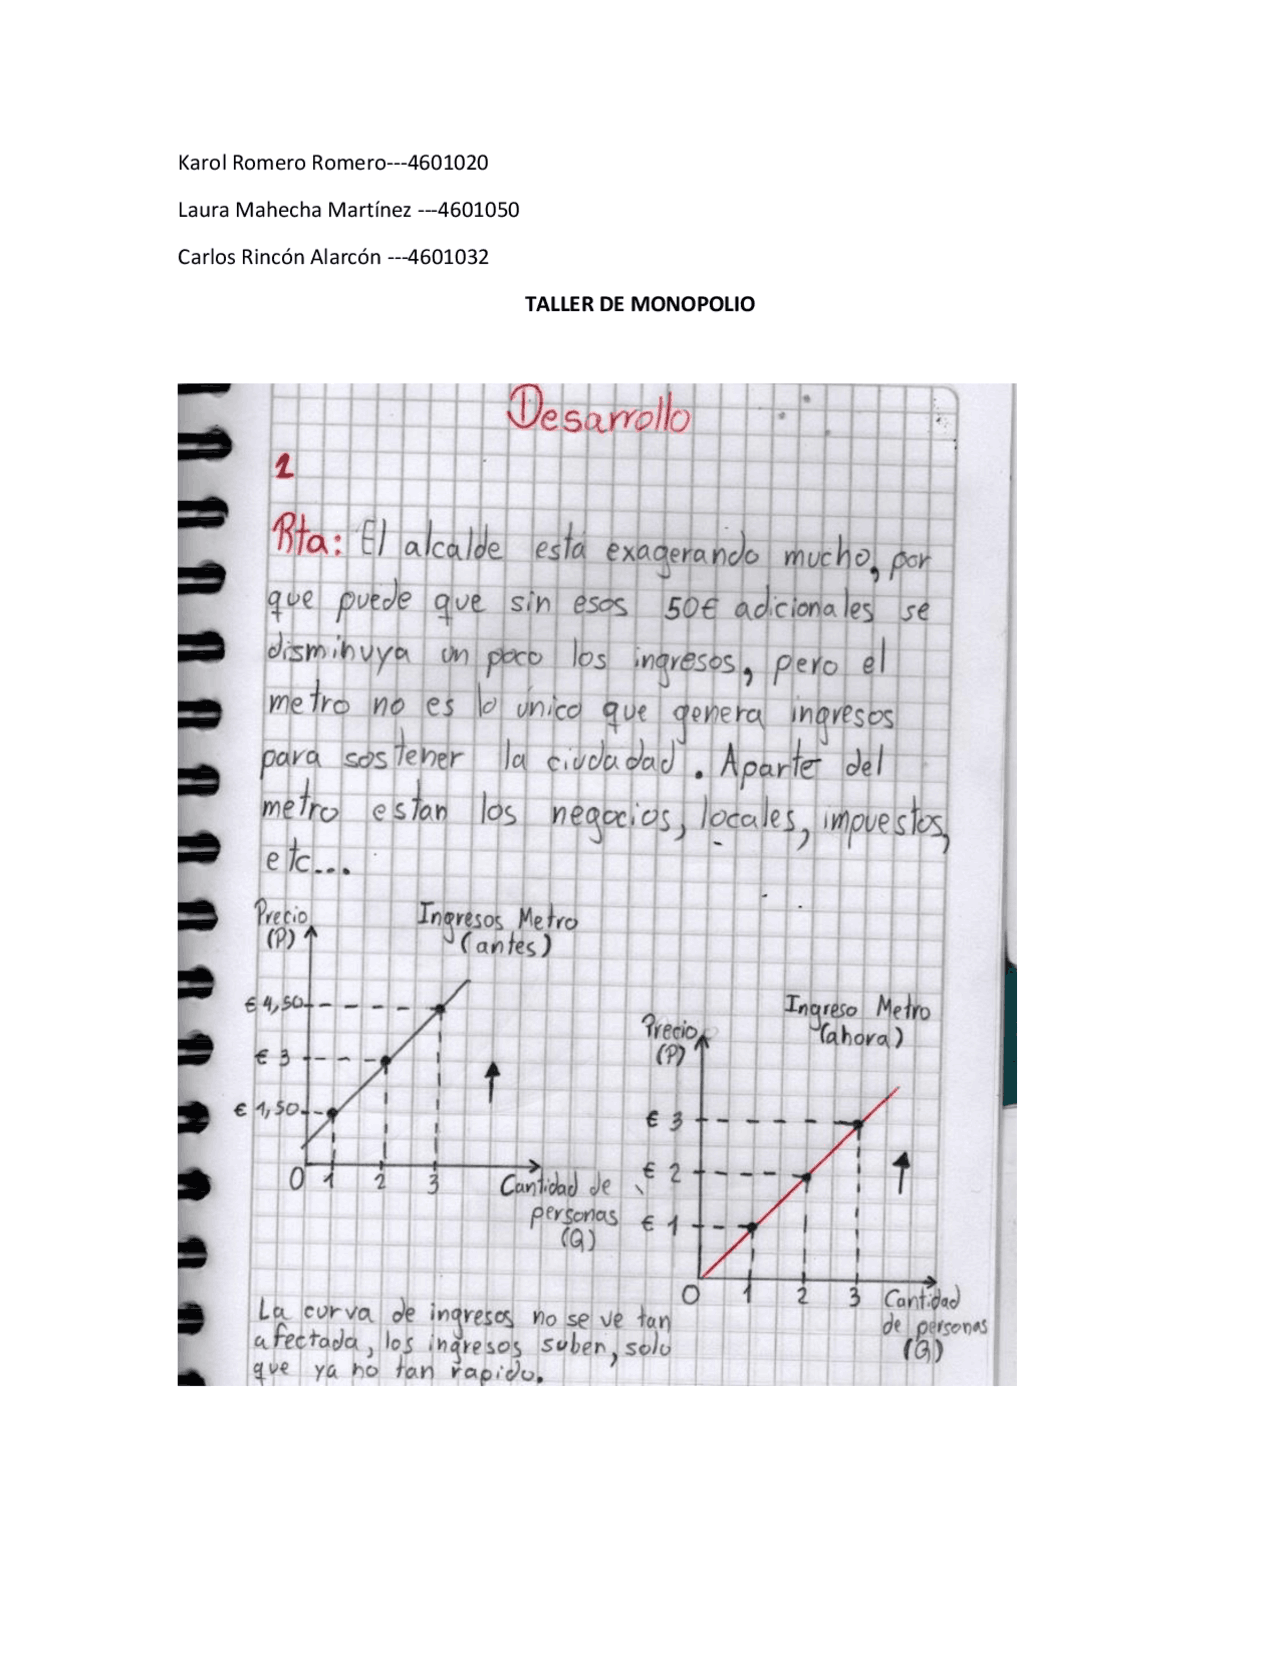 Karol Romero Romero---4601020
Laura Mahecha Martínez ---4601050
Carlos Rincón Alarcón ---4601032
TALLER DE MONOPOLIO
Desarrollo
1
Rta: El alcalde está exagerando mucho, por
que puede que sin esos 50€ adicionales se
disminuya un poco los ingresos, pero el
metro no es lo único que genera ingresos
para sostener la ciudadad. Aparte del
metro estan los negocios, locales, impuestos,
etc...
Precio
(P)
Ingresos Metro
(antes)
€ 4,50
€ 3
€ 1,50
0 1 2 3
Cantidad de
personas
(Q)
Ingreso Metro
(ahora)
Precio
(P)
€ 3
€ 2
€ 1
0 1 2 3
Cantidad
de personas
(Q)
La curva de ingresos no se ve tan
afectada, los ingresos suben, solo
que ya no tan rapido.